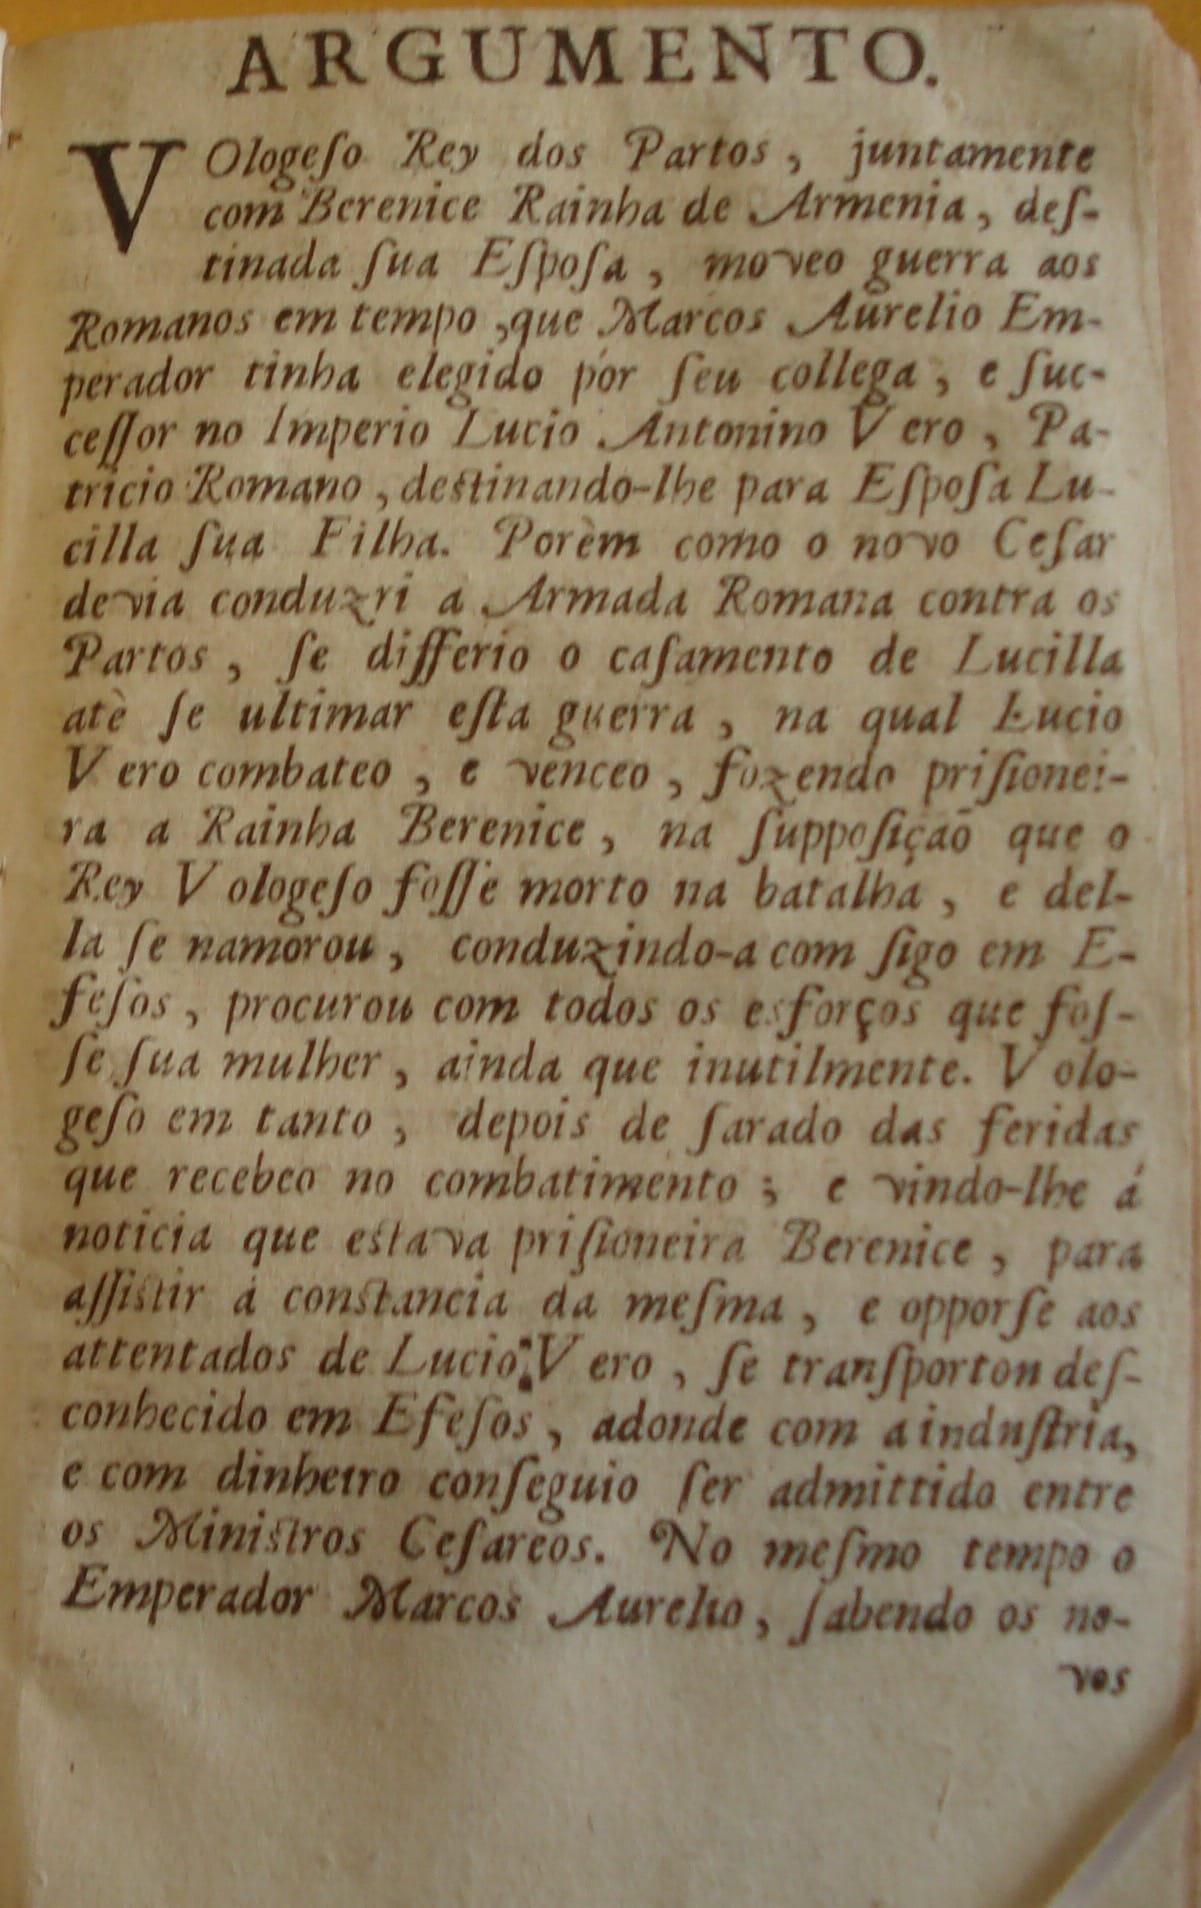 ARGUMENTO.
VOlogeſo Rey dos Partos, juntamente
com Berenice Rainha de Armenia, deſ-
tinada ſua Eſpoſa, moveo guerra aos
Romanos em tempo, que Marcos Aurelio Em-
perador tinha elegido por ſeu collega, e ſuc-
ceſſor no Imperio Lucio Antonino Vero, Pa-
tricio Romano, destinando-lhe para Eſpoſa Lu-
cilla ſua Filha. Porèm como o novo Ceſar
devia conduzri a Armada Romana contra os
Partos, ſe differio o caſamento de Lucilla
atè ſe ultimar eſta guerra, na qual Lucio
Vero combateo, e venceo, fozendo priſionei-
ra a Rainha Berenice, na ſuppoſiçaõ que o
Rey Vologeſo foſſe morto na batalha, e del-
la ſe namorou, conduzindo-a com ſigo em E-
feſos, procurou com todos os esforços que foſ-
ſe ſua mulher, ainda que inutilmente. Volo-
geſo em tanto, depois de ſarado das feridas
que recebeo no combatimento; e vindo-lhe á
noticia que estava priſioneira Berenice, para
aſſistir á constancia da meſma, e opporſe aos
attentados de Lucio Vero, ſe tranſporton deſ-
conhecido em Efeſos, adonde com a induſtria,
e com dinheiro conſeguio ſer admittido entre
os Ministros Ceſareos. No meſmo tempo o
Emperador Marcos Aurelio, ſabendo os no-
vos